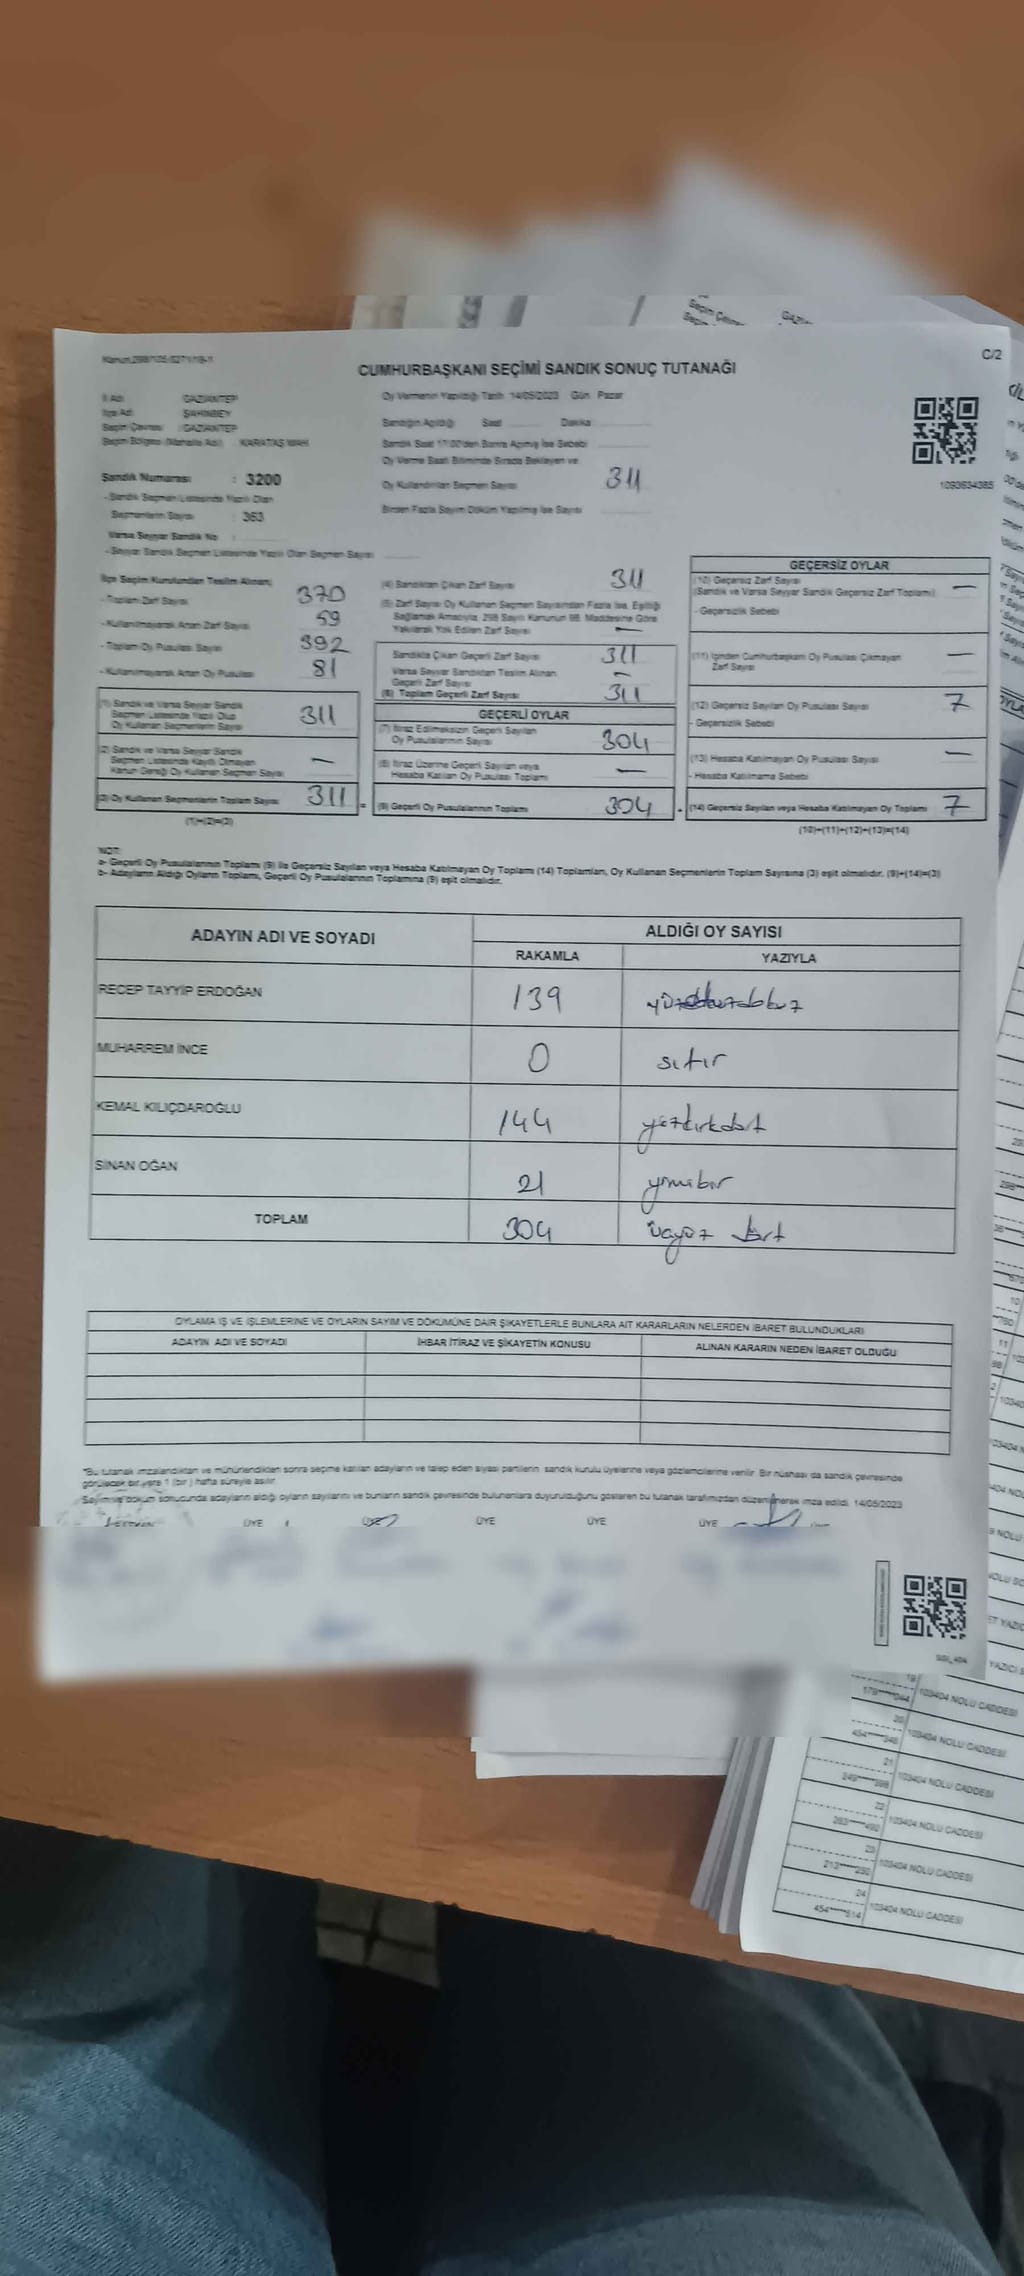 Kanun:298/105:5271/18-1
C/2
CUMHURBAŞKANI SEÇİMİ SANDIK SONUÇ TUTANAĞI
İl Adı : GAZİANTEP
İlçe Adı : ŞAHİNBEY
Seçim Çevresi : GAZİANTEP
Seçim Bölgesi (Mahalle Adı) : KARATAŞ MAH
Sandık Numarası : 3200
- Sandık Seçmen Listesinde Yazılı Olan
Seçmenlerin Sayısı : 363
Varsa Seyyar Sandık No :
- Seyyar Sandık Seçmen Listesinde Yazılı Olan Seçmen Sayısı
Oy Vermenin Yapıldığı Tarih 14/05/2023 Gün Pazar
Sandığın Açıldığı Saat Dakika
Sandık Saat 17:00'den Sonra Açılmış İse Sebebi
Oy Verme Saati Bitiminde Sırada Bekleyen ve
Oy Kullandırılan Seçmen Sayısı 311
Birden Fazla Sayım Döküm Yapılmış İse Sayısı
1093634385
İlçe Seçim Kurulundan Teslim Alınan;
- Toplam Zarf Sayısı 370
- Kullanılmayarak Artan Zarf Sayısı 59
- Toplam Oy Pusulası Sayısı 392
- Kullanılmayarak Artan Oy Pusulası 81
(1) Sandık ve Varsa Seyyar Sandık
Seçmen Listesinde Yazılı Olup
Oy Kullanan Seçmenlerin Sayısı 311
(2) Sandık ve Varsa Seyyar Sandık
Seçmen Listesinde Kayıtlı Olmayan
Kanun Gereği Oy Kullanan Seçmen Sayısı —
(3) Oy Kullanan Seçmenlerin Toplam Sayısı 311 =
(1)+(2)=(3)
(4) Sandıktan Çıkan Zarf Sayısı 311
(5) Zarf Sayısı Oy Kullanan Seçmen Sayısından Fazla İse, Eşitliği
Sağlamak Amacıyla, 298 Sayılı Kanunun 98. Maddesine Göre
Yakılarak Yok Edilen Zarf Sayısı —
Sandıkta Çıkan Geçerli Zarf Sayısı 311
Varsa Seyyar Sandıktan Teslim Alınan
Geçerli Zarf Sayısı —
(6) Toplam Geçerli Zarf Sayısı 311
GEÇERLİ OYLAR
(7) İtiraz Edilmeksizin Geçerli Sayılan
Oy Pusulalarının Sayısı 304
(8) İtiraz Üzerine Geçerli Sayılan veya
Hesaba Katılan Oy Pusulası Toplamı —
(9) Geçerli Oy Pusulalarının Toplamı 304
GEÇERSİZ OYLAR
(10) Geçersiz Zarf Sayısı
(Sandık ve Varsa Seyyar Sandık Geçersiz Zarf Toplamı) —
- Geçersizlik Sebebi
(11) İçinden Cumhurbaşkanı Oy Pusulası Çıkmayan
Zarf Sayısı —
(12) Geçersiz Sayılan Oy Pusulası Sayısı 7
- Geçersizlik Sebebi
(13) Hesaba Katılmayan Oy Pusulası Sayısı —
- Hesaba Katılmama Sebebi
(14) Geçersiz Sayılan veya Hesaba Katılmayan Oy Toplamı 7
(10)+(11)+(12)+(13)=(14)
NOT:
a- Geçerli Oy Pusulalarının Toplamı (9) ile Geçersiz Sayılan veya Hesaba Katılmayan Oy Toplamı (14) Toplamları, Oy Kullanan Seçmenlerin Toplam Sayısına (3) eşit olmalıdır. (9)+(14)=(3)
b- Adayların Aldığı Oyların Toplamı, Geçerli Oy Pusulalarının Toplamına (9) eşit olmalıdır.
ADAYIN ADI VE SOYADI
ALDIĞI OY SAYISI
RAKAMLA YAZIYLA
RECEP TAYYİP ERDOĞAN 139
MUHARREM İNCE 0 sıfır
KEMAL KILIÇDAROĞLU 144 yüzkırkdört
SİNAN OĞAN 21 yirmibir
TOPLAM 304 üçyüz dört
OYLAMA İŞ VE İŞLEMLERİNE VE OYLARIN SAYIM VE DÖKÜMÜNE DAİR ŞİKAYETLERLE BUNLARA AİT KARARLARIN NELERDEN İBARET BULUNDUKLARI
ADAYIN ADI VE SOYADI İHBAR İTİRAZ VE ŞİKAYETİN KONUSU ALINAN KARARIN NEDEN İBARET OLDUĞU
*Bu tutanak imzalandıktan ve mühürlendikten sonra seçime katılan adayların ve talep eden siyasi partilerin sandık kurulu üyelerine veya gözlemcilerine verilir. Bir nüshası da sandık çevresinde
görülecek bir yere 1 (bir) hafta süreyle asılır.
Sayım ve döküm sonucunda adayların aldığı oyların sayılarını ve bunların sandık çevresinde bulunanlara duyurulduğunu gösteren bu tutanak tarafımızdan düzenlenerek imza edildi. 14/05/2023
ÜYE ÜYE ÜYE ÜYE ÜYE ÜYE
19
179*****044 103404 NOLU CADDESİ
20
454*****546 103404 NOLU CADDESİ
21
249*****398 103404 NOLU CADDESİ
22
263*****492 103404 NOLU CADDESİ
23
213*****250 103404 NOLU CADDESİ
24
454*****514 103404 NOLU CADDESİ